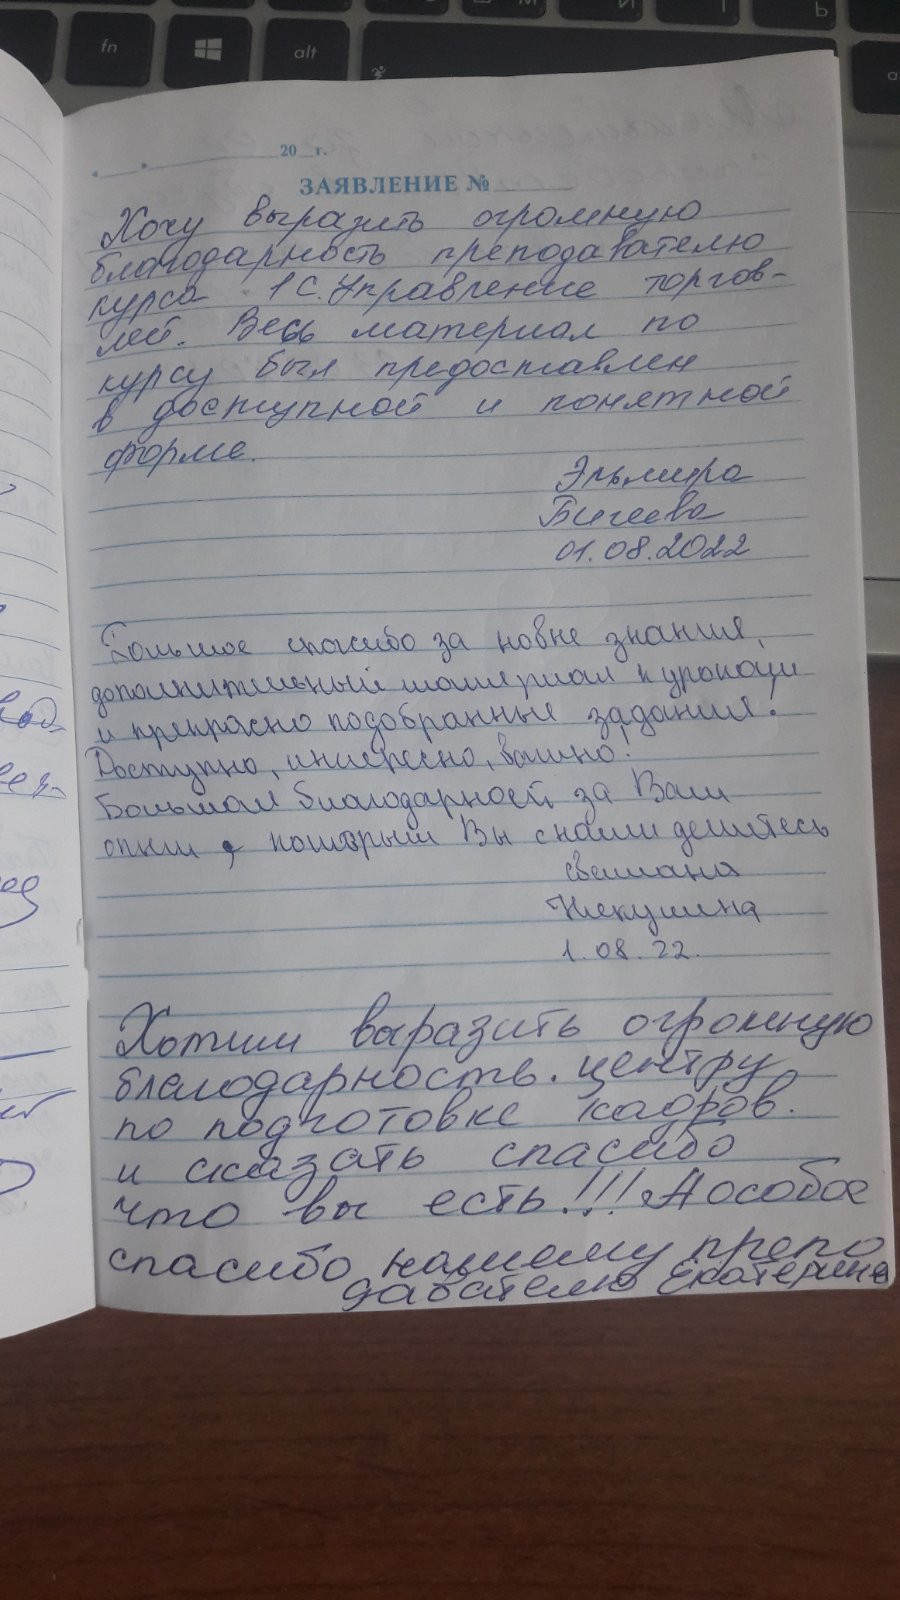 fn
alt
20 г.
ЗАЯВЛЕНИЕ №
Хочу выразить огромную
благодарность преподавателю
курса 1С. Управление торгов-
лей. Весь материал по
курсу был предоставлен
в доступной и понятной
форме.
Эльмира
Бигеева
01.08.2022
Большое спасибо за новые знания,
дополнительный материал к урокам
и прекрасно подобранные задания!
Доступно, интересно, важно!
Большая благодарность за Ваш
опыт, который Вы с нами делитесь
Светлана
1.08.22.
Хотим выразить огромную
благодарность. центру
по подготовке кадров.
и сказать спасибо
что вы есть!!! А особое
спасибо нашему препо
давателю Екатерине